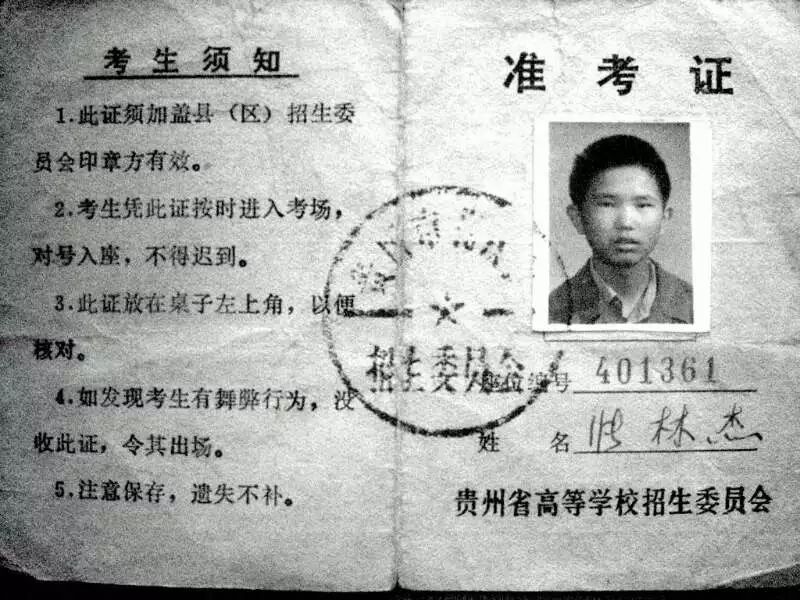 考生须知
1.此证须加盖县（区）招生委
员会印章方有效。
2.考生凭此证按时进入考场，
对号入座，不得迟到。
3.此证放在桌子左上角，以便
核对。
4.如发现考生有舞弊行为，没
收此证，令其出场。
5.注意保存，遗失不补。
准考证
招生委员会
座位编号 401361
姓名 林杰
贵州省高等学校招生委员会